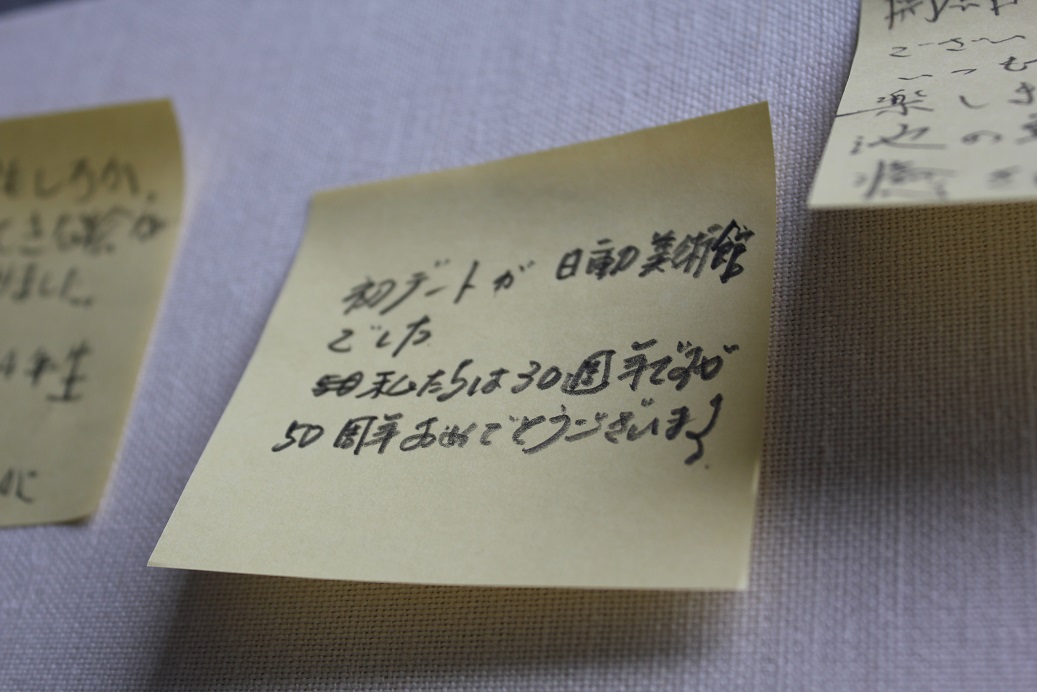 もしろか
てきな絵が
りました。
4年生
初デートが 日動美術館
でした
私たちは30周年ですが
50周年おめでとうございます
ござい
いつも
楽しき
池の